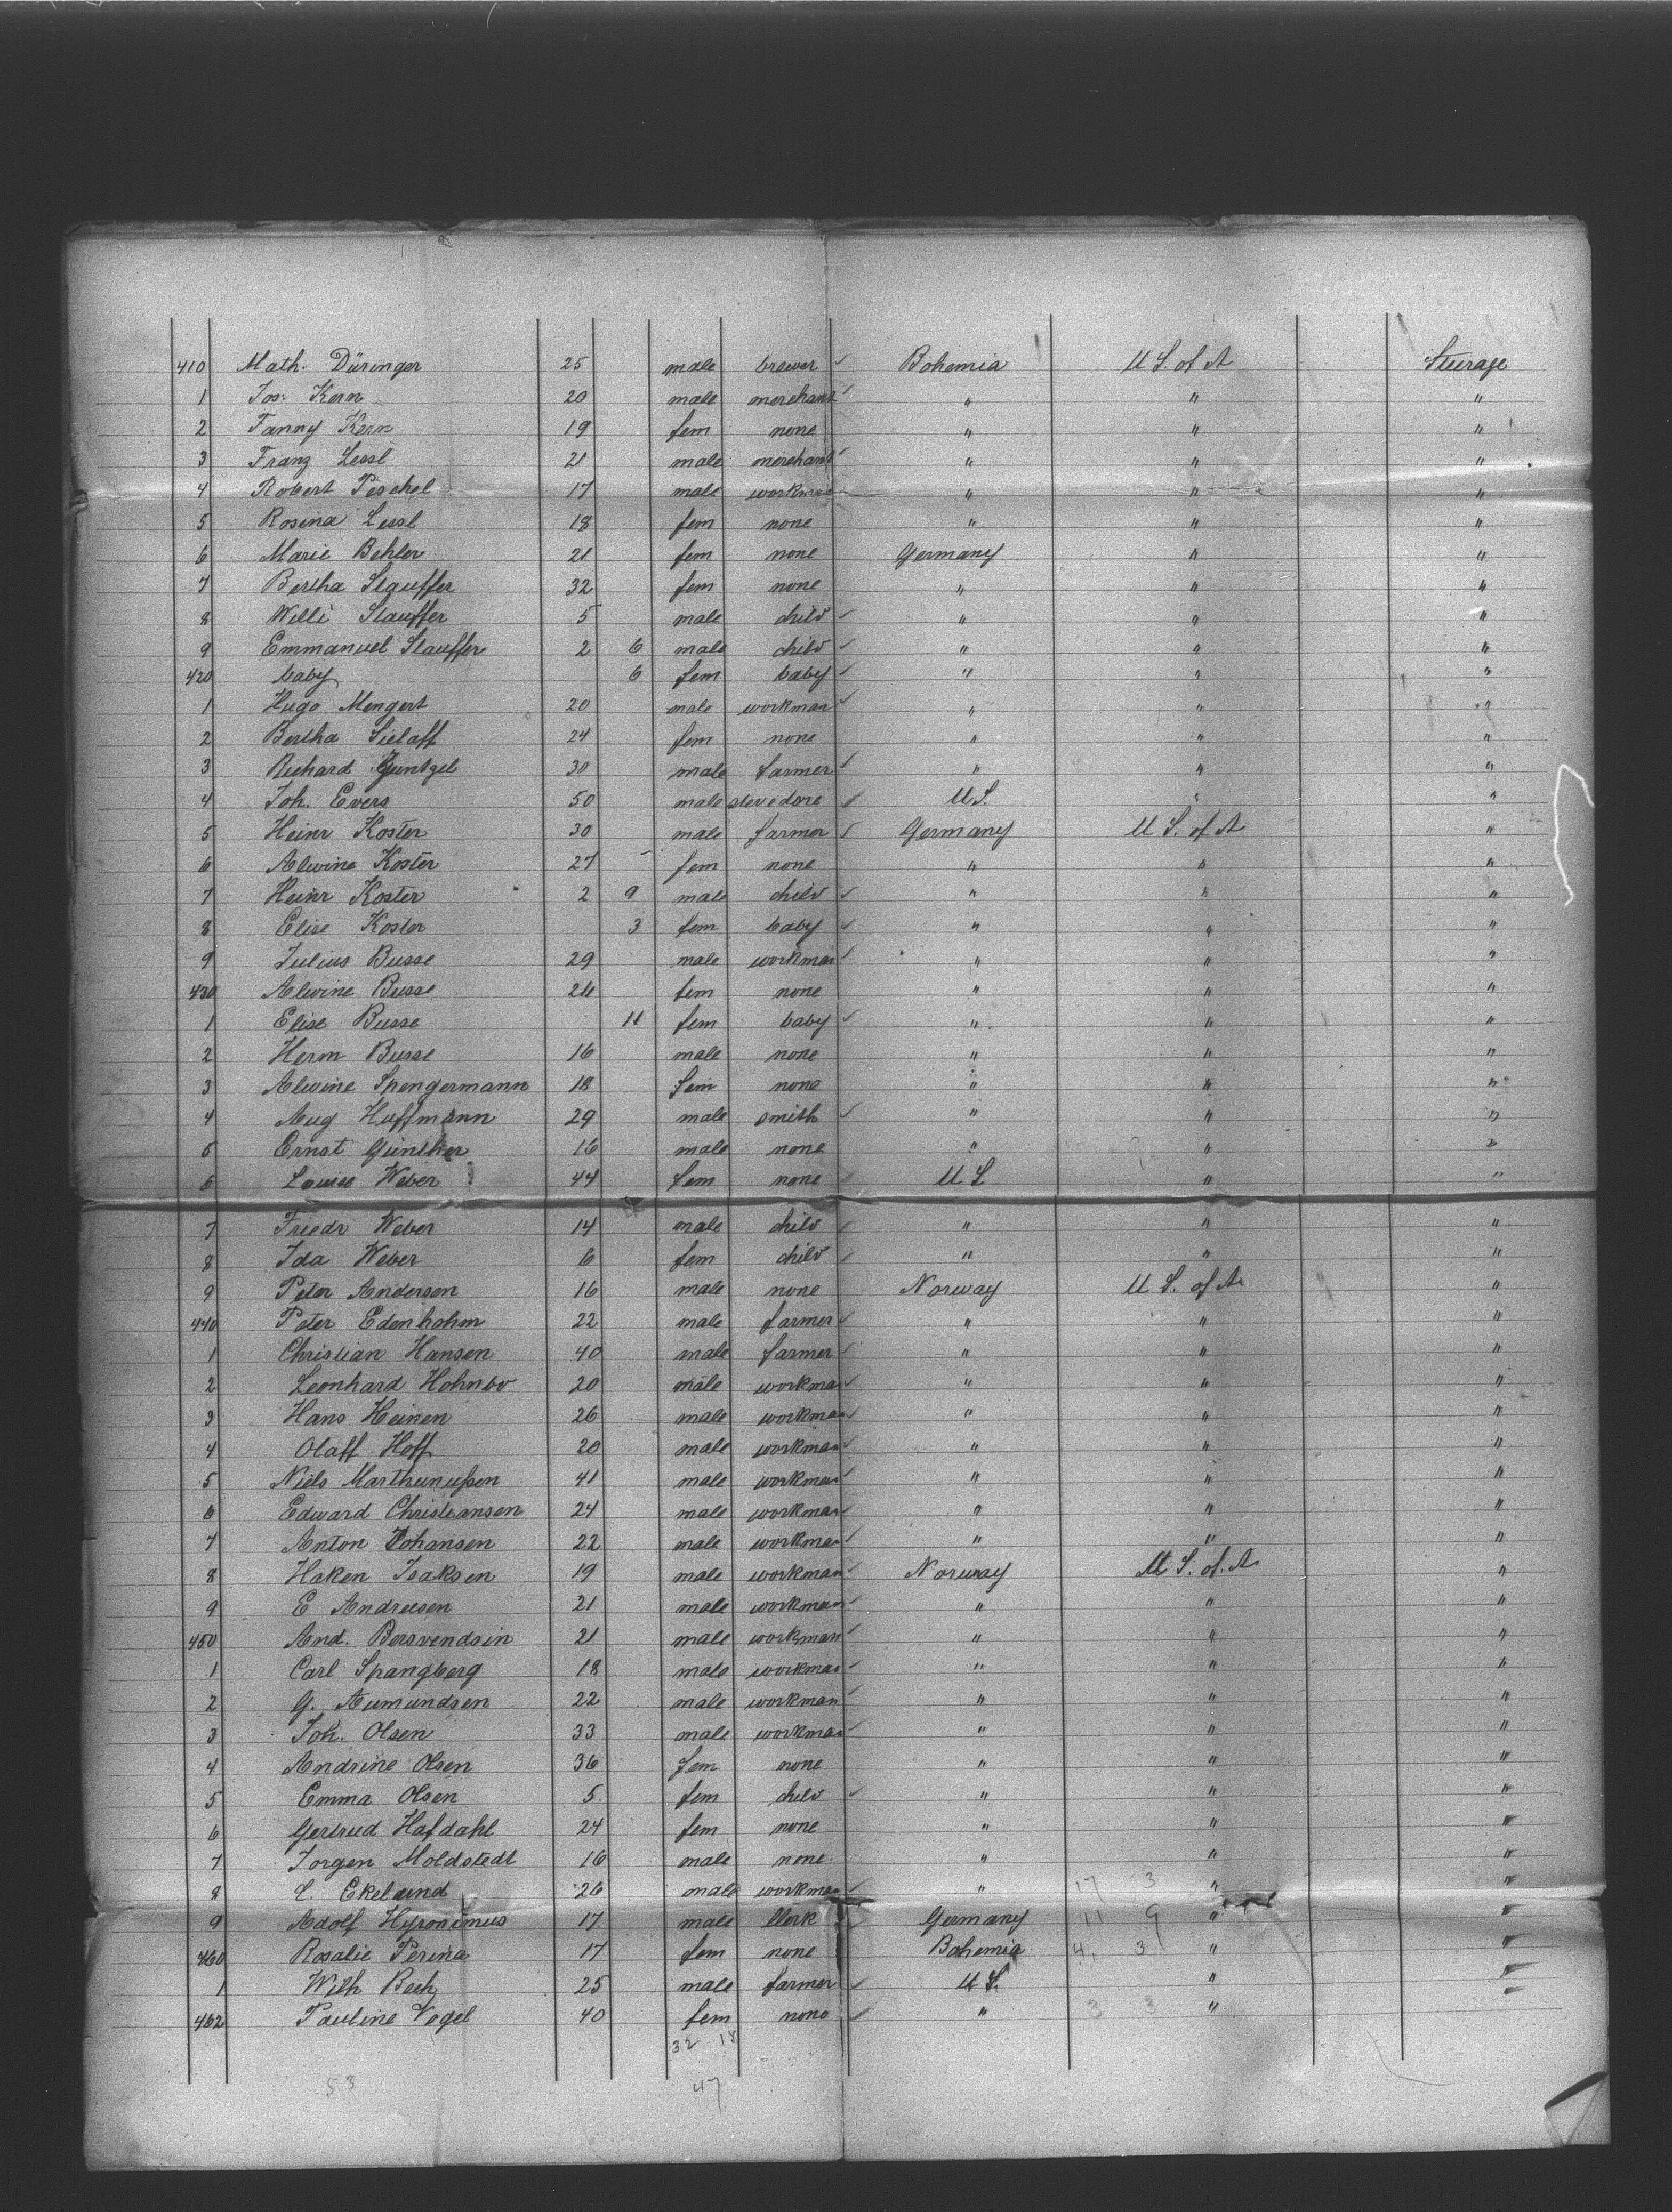 410 Math. Düringer 25 male brewer ✓ Bohemia U S. of A Steerage
1 Jos. Kern 20 male merchant ✓ " " "
2 Fanny Kern 19 fem none " " "
3 Franz Lessl 21 male merchant ✓ " " "
4 Robert Peschel 17 male workman " " "
5 Rosina Lessl 18 fem none " " "
6 Marie Behler 21 fem none Germany " "
7 Bertha Stauffer 32 fem none " " "
8 Willi Stauffer 5 male child ✓ " " "
9 Emmanuel Stauffer 2 6 male child ✓ " " "
420 baby 6 fem baby ✓ " " "
1 Hugo Mengert 20 male workman ✓ " " "
2 Bertha Sielaff 24 fem none " " "
3 Richard Guntzel 30 male farmer ✓ " " "
4 Joh. Evers 50 male stevedore ✓ U S. " "
5 Heinr Koster 30 male farmer ✓ Germany U S. of A "
6 Alwine Koster 27 fem none " " "
7 Heinr Koster 2 9 male child ✓ " " "
8 Elise Koster 3 fem baby ✓ " " "
9 Julius Busse 29 male workman ✓ " " "
430 Alwine Busse 24 fem none " " "
1 Elise Busse 11 fem baby ✓ " " "
2 Herm Busse 16 male none " " "
3 Alwine Spengermann 18 fem none " " "
4 Aug Huffmann 29 male smith ✓ " " "
5 Ernst Günther 16 male none " " "
6 Louise Weber 44 fem none U S " "
7 Friedr Weber 14 male child ✓ " " "
8 Ida Weber 6 fem child ✓ " " "
9 Peter Andersen 16 male none Norway U S. of A "
440 Peter Edenholm 22 male farmer ✓ " " "
1 Christian Hansen 40 male farmer ✓ " " "
2 Leonhard 20 male workman ✓ " " "
3 Hans Heinen 26 male workman ✓ " " "
4 Olaff Hoff 20 male workman ✓ " " "
5 Niels 41 male workman ✓ " " "
6 Edward Christiansen 24 male workman ✓ " " "
7 Anton Johansen 22 male workman ✓ " " "
8 Haken Isaksen 19 male workman ✓ Norway U S. of. A "
9 E Andreesen 21 male workman ✓ " " "
450 And. Bersvendsin 21 male workman ✓ " " "
1 Carl Spangberg 18 male workman ✓ " " "
2 G. Aumundsen 22 male workman ✓ " " "
3 Joh. Olsen 33 male workman ✓ " " "
4 Andrine Olsen 36 fem none " " "
5 Emma Olsen 5 fem child ✓ " " "
6 Gertrud Hafdahl 24 fem none " " "
7 Jorgen Moldstedt 16 male none " " "
8 L. Ekelund 26 male workman ✓ " 17 3 " "
9 Adolf Hyronimus 17 male Clerk Germany 11 9 " "
460 Rosalie Perina 17 fem none Bohemia 4 3 " "
1 Wilh Bech 25 male farmer ✓ U S. " "
462 Pauline Vogel 40 fem none ✓ " 3 3 "
32 15
53 47